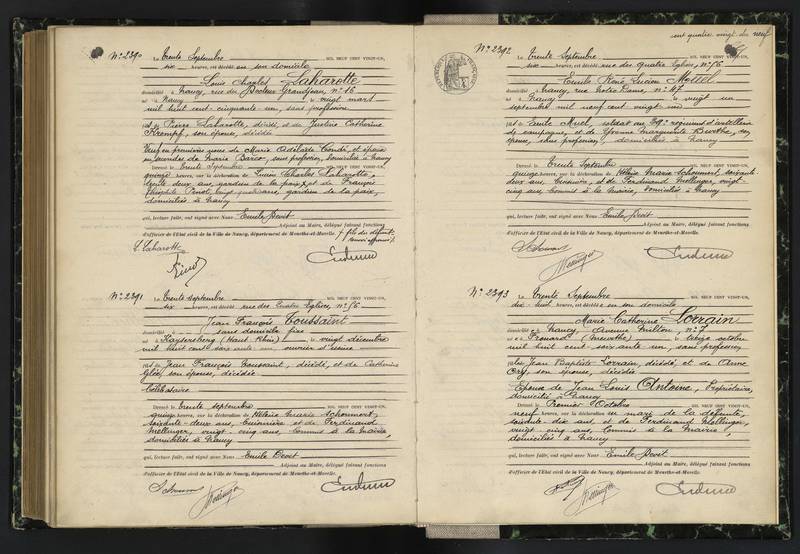 N° 2390
Le trente Septembre MIL NEUF CENT VINGT-UN,
six heures, est décédé en son domicile
Louis Charles Laharotte
domicilié à Nancy, rue du Docteur Grandjean, n° 16
né à Nancy le vingt mars
mil huit cent cinquante un, sans profession
fils de Pierre Laharotte, décédé, et de Justine Catherine
Krempf, son épouse, décédée
Veuf en premières noces de Marie Adélaïde Condi, et époux
en secondes de Marie sans profession, domiciliée à Nancy
Dressé le trente Septembre MIL NEUF CENT VINGT-UN,
quinze heures, sur la déclaration de Lucien Charles Laharotte,
trente deux ans, gardien de la paix, x et de François
ans, gardien de la paix,
domiciliés à Nancy
qui, lecture faite, ont signé avec Nous Emile
Adjoint au Maire, délégué faisant fonctions
d'officier de l'Etat civil de la Ville de Nancy, département de Meurthe-et-Moselle.
x fils du défunt
L. Laharotte
N° 2391
Le trente septembre MIL NEUF CENT VINGT-UN,
six heures, est décédé rue des Quatre Eglises, n° 56
Jean François Toussaint
domicilié sans domicile fixe
né à Kaysersberg (Haut Rhin) le vingt décembre
mil huit cent soixante un, ouvrier d'usine
fils de Jean François Toussaint, décédé, et de Catherine
son épouse, décédée
Célibataire
Dressé le trente septembre MIL NEUF CENT VINGT-UN,
quinze heures, sur la déclaration de Hélène Marie Schoumert,
soixante-deux ans, et de Ferdinand
Mellinger, vingt cinq ans, Commis à la Mairie,
domiciliés à Nancy
qui, lecture faite, ont signé avec Nous Emile
Adjoint au Maire, délégué faisant fonctions
d'officier de l'Etat civil de la Ville de Nancy, département de Meurthe-et-Moselle.
cent quatre vingt dix neuf
N° 2392
Le trente Septembre MIL NEUF CENT VINGT-UN,
six heures, est décédé rue des Quatre Eglises, n° 56
Emile René Lucien
domicilié à Nancy, rue Notre Dame, n° 47
né à Nancy le vingt un
septembre mil neuf cent vingt un
fils de Emile soldat au régiment d'artillerie
de campagne, et de Yvonne Marguerite son
épouse, sans profession, domiciliés à Nancy
Dressé le trente Septembre MIL NEUF CENT VINGT-UN,
quinze heures, sur la déclaration de Hélène Marie Schoumert, soixante-
deux ans, et de Ferdinand Mellinger, vingt-
cinq ans, Commis à la Mairie, domiciliés à Nancy
qui, lecture faite, ont signé avec Nous Emile
Adjoint au Maire, délégué faisant fonctions
d'officier de l'Etat civil de la Ville de Nancy, département de Meurthe-et-Moselle.
N° 2393
Le trente Septembre MIL NEUF CENT VINGT-UN,
dix-huit heures, est décédée en son domicile
Marie Catherine Lorrain
domiciliée à Nancy, Avenue Milton, n° 7
née à Frouard (Meurthe) le treize octobre
mil huit cent soixante un, sans profession
fille de Jean Baptiste Lorrain, décédé, et de Anne
son épouse, décédée
Epouse de Jean Louis Antoine, Propriétaire,
domicilié à Nancy
Dressé le Premier Octobre MIL NEUF CENT VINGT-UN,
neuf heures, sur la déclaration du mari de la défunte,
soixante-dix ans, et de Ferdinand Mellinger,
vingt cinq ans, Commis à la Mairie,
domiciliés à Nancy
qui, lecture faite, ont signé avec Nous Emile
Adjoint au Maire, délégué faisant fonctions
d'officier de l'Etat civil de la Ville de Nancy, département de Meurthe-et-Moselle.